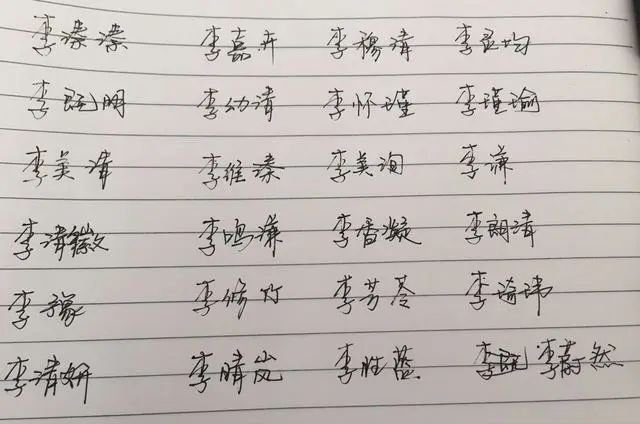 李溱溱 李嘉卉 李穆清 李灵均
李昭明 李幼清 李怀瑾 李瑾瑜
李美清 李维溱 李美洵 李谦
李清徽 李鸣谦 李香凝 李朗清
李豫 李修竹 李芳苓 李琦玮
李清妍 李晴岚 李胜蓝 李蔚然